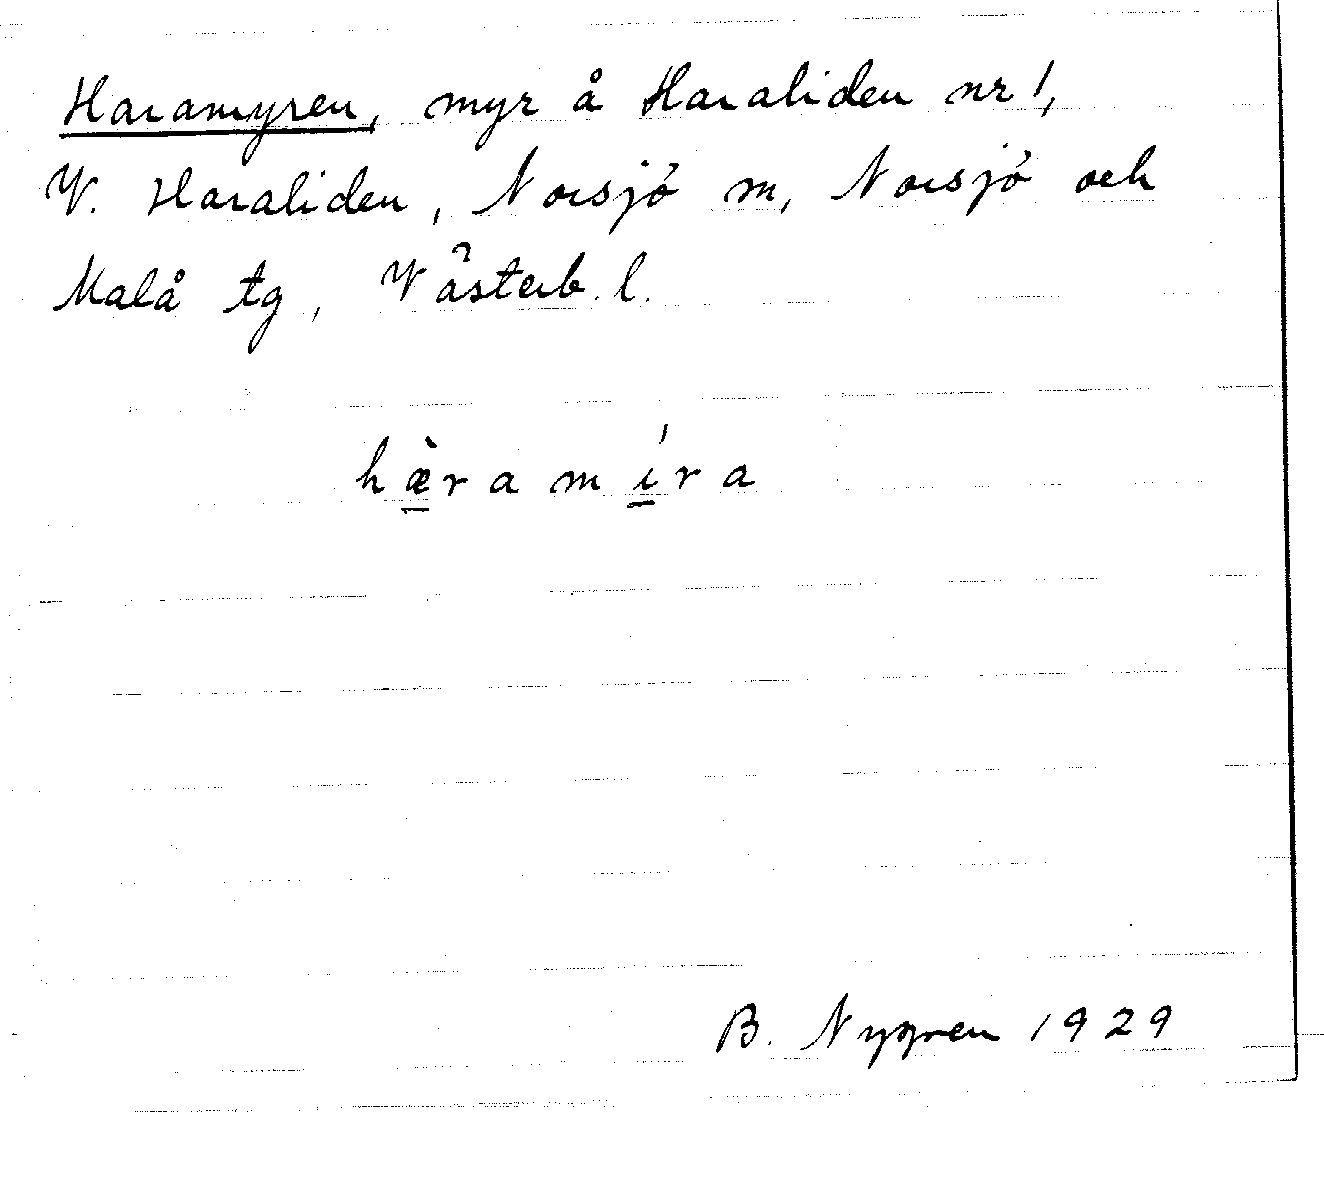 Haramyren, myr å Haraliden nr 1,
V. Haraliden, Norsjö m, Norsjö och
Malå tg, Västerb. l.
hæ̀ramíra
B. Nygren 1929